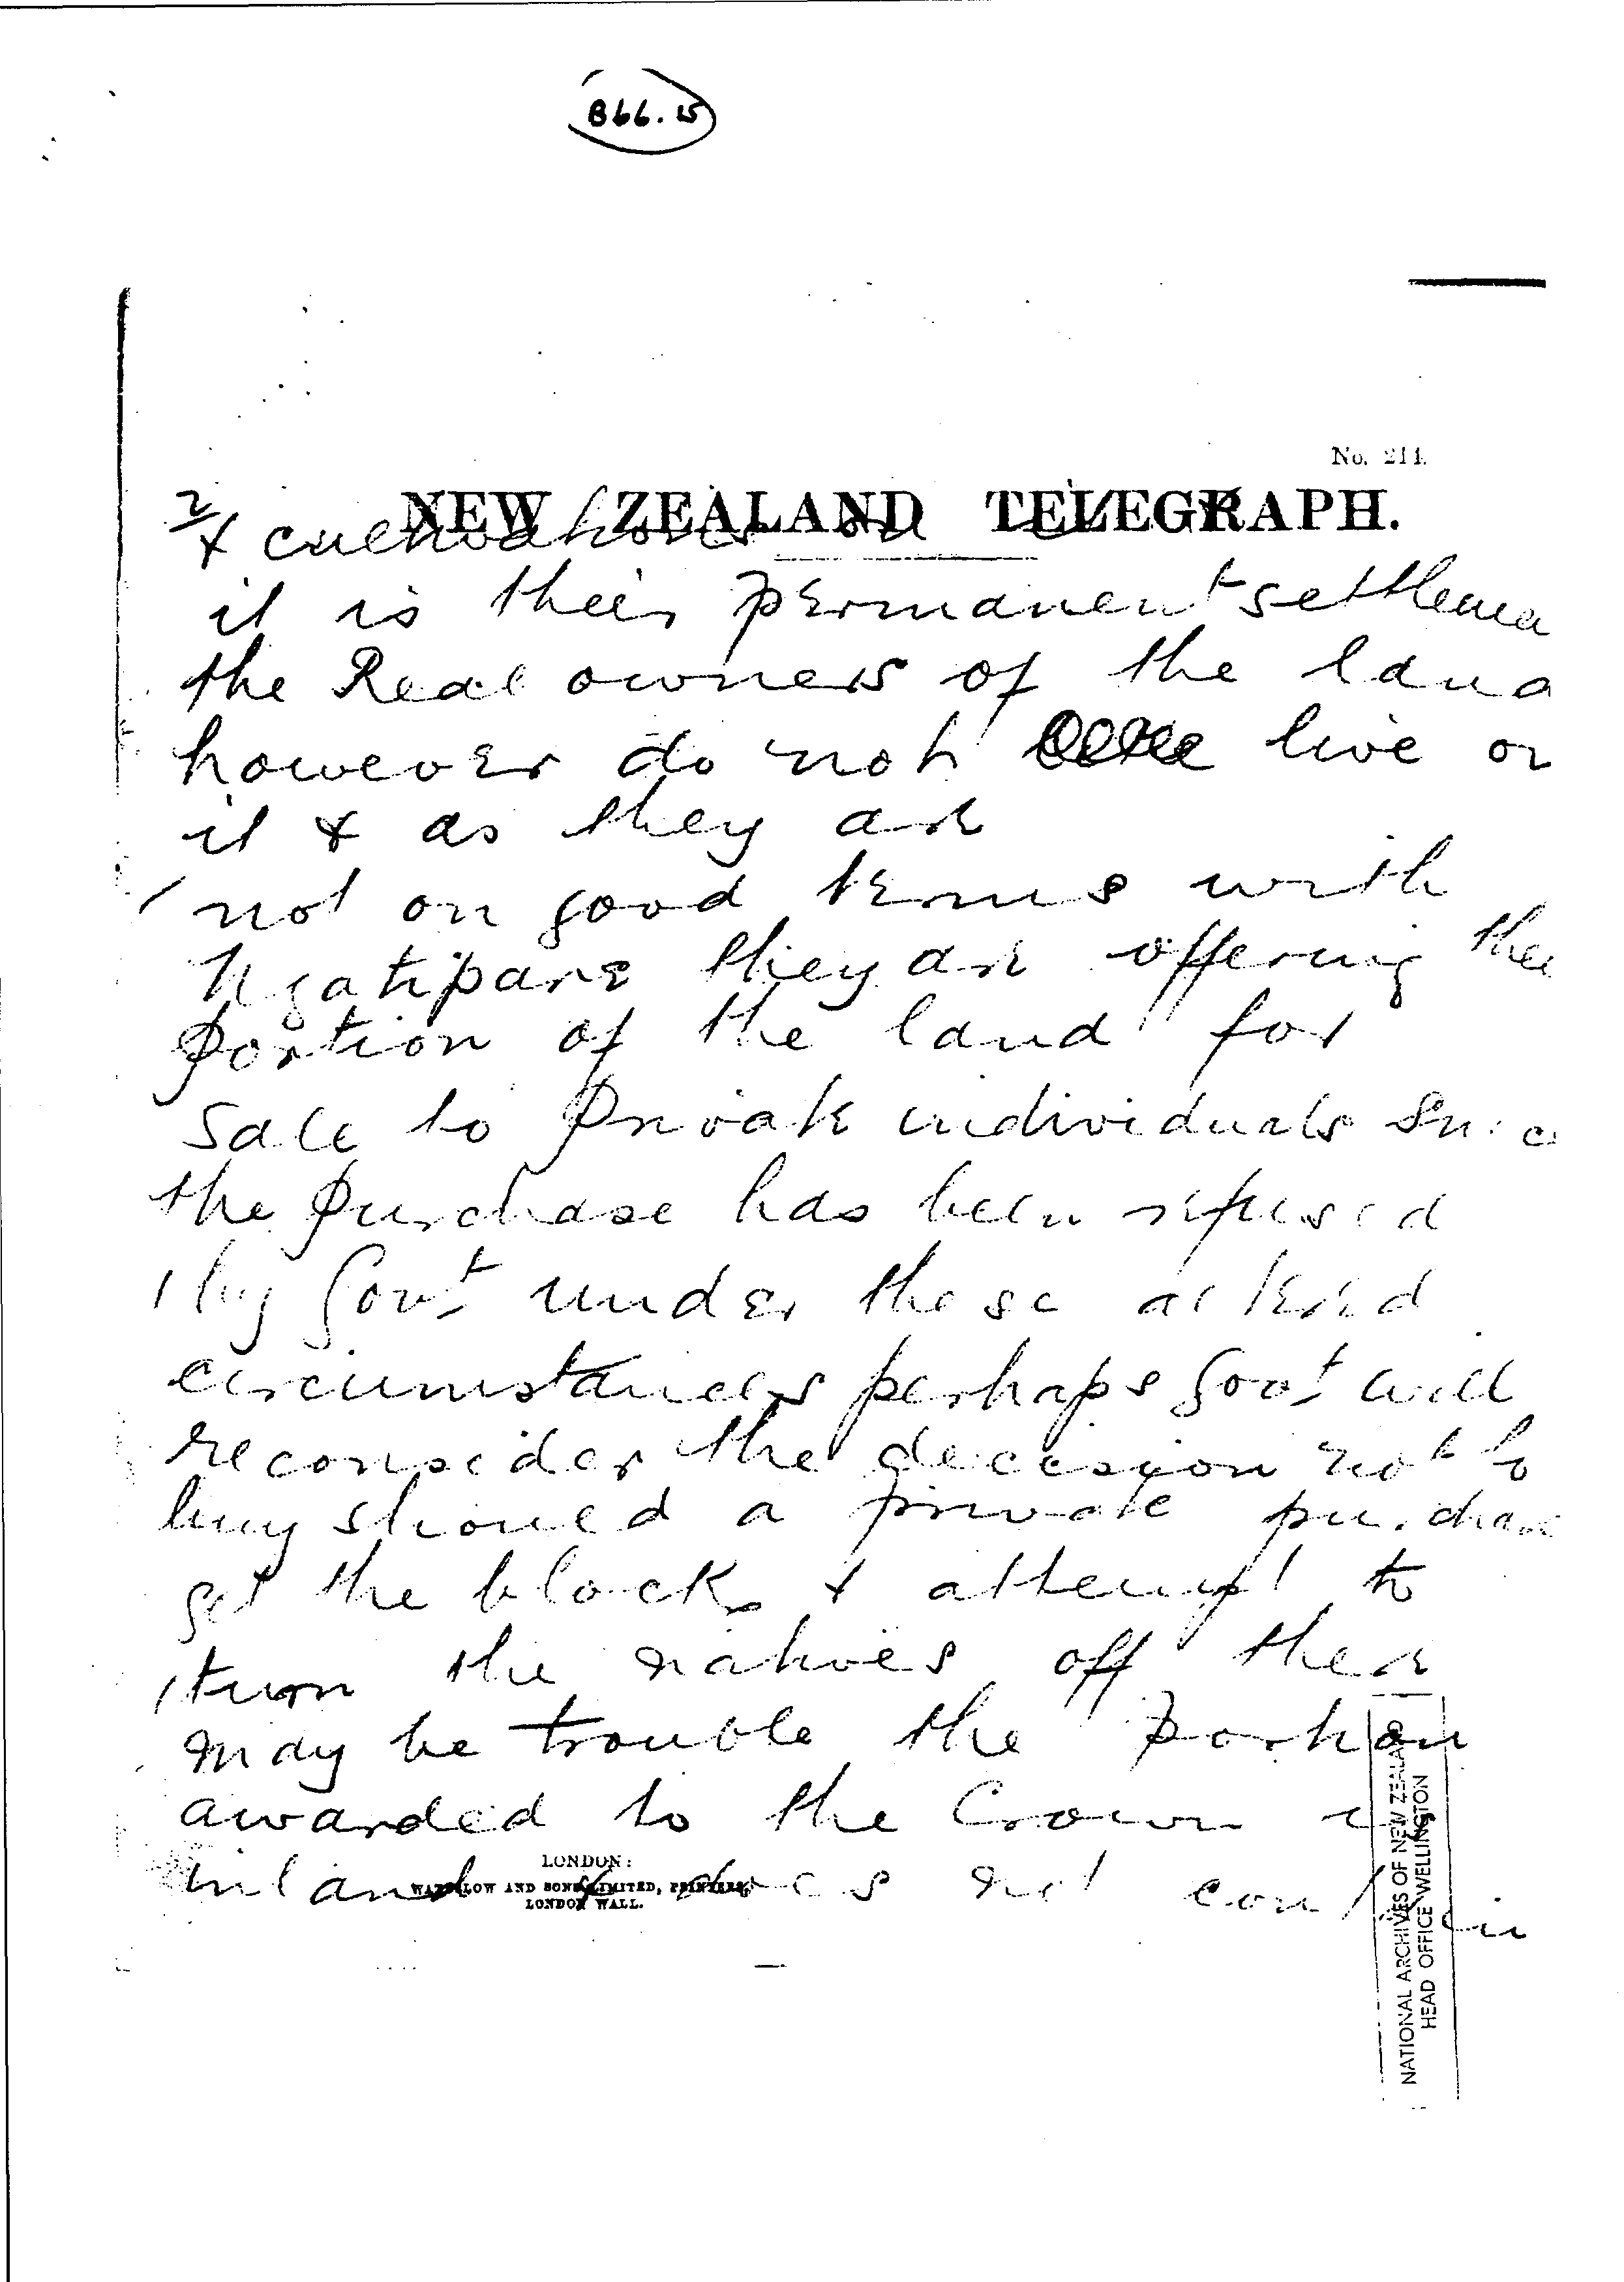 B66.15
No. 211.
NEW ZEALAND TELEGRAPH.
2/
& cultivations on it
it is their permanent settlemen
the Real owners of the land
however do not live on
it & as they are
not on good terms with
Ngatipare they are offering their
portion of the land for
sale to Private individuals since
the purchase has been refused
by Govt under these altered
circumstances perhaps Govt will
reconsider the decision not to
buy should a private purchas
get the block & attempt to
turn the natives off there
may be trouble the portion
awarded to the Crown is
inland & does not contain
LONDON:
WATERLOW AND SONS LIMITED, PRINTERS,
LONDON WALL.
NATIONAL ARCHIVES OF NEW ZEALAND
HEAD OFFICE WELLINGTON